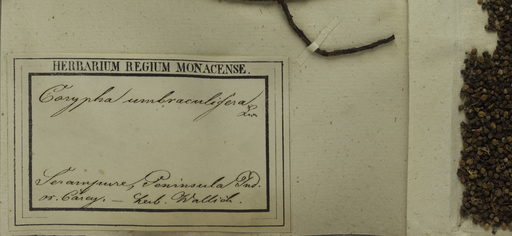 HERBARIUM REGIUM MONACENSE.
Corypha umbraculifera
Lin
Serampure, Peninsula Ind.
or. Carey. — herb. Wallich.